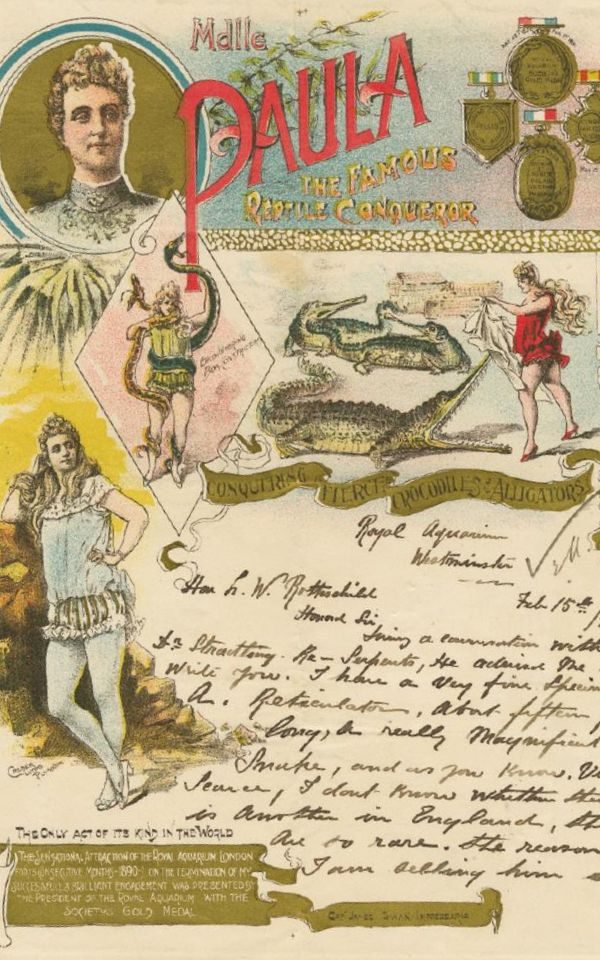 Mdlle
PAULA
THE FAMOUS
REPTILE CONQUEROR
CONQUERING FIERCE CROCODILES & ALLIGATORS
Royal Aquarium
Westminster
Hon L. W. Rothschild
Feb 15th
Honord Sir
a conversation with
Dr Re - Serpents, He advised Me
Write You. I have a very fine Speci
A. Reticulatus, About fifteen
long, a really Magnificent
Snake, and as you Know. V
Scarce, I dont Know whether the
is Another in England, th
Are so rare. the reason
I am selling him
THE ONLY ACT OF ITS KIND IN THE WORLD
THE SENSATIONAL ATTRACTION OF THE ROYAL AQUARIUM LONDON
FOR 5 CONSECUTIVE MONTHS -1890- ON THE TERMINATION OF MY
SUCCESSFUL & BRILLIANT ENGAGEMENT WAS PRESENTED BY
THE PRESIDENT OF THE ROYAL AQUARIUM WITH THE
SOCIETYS GOLD MEDAL